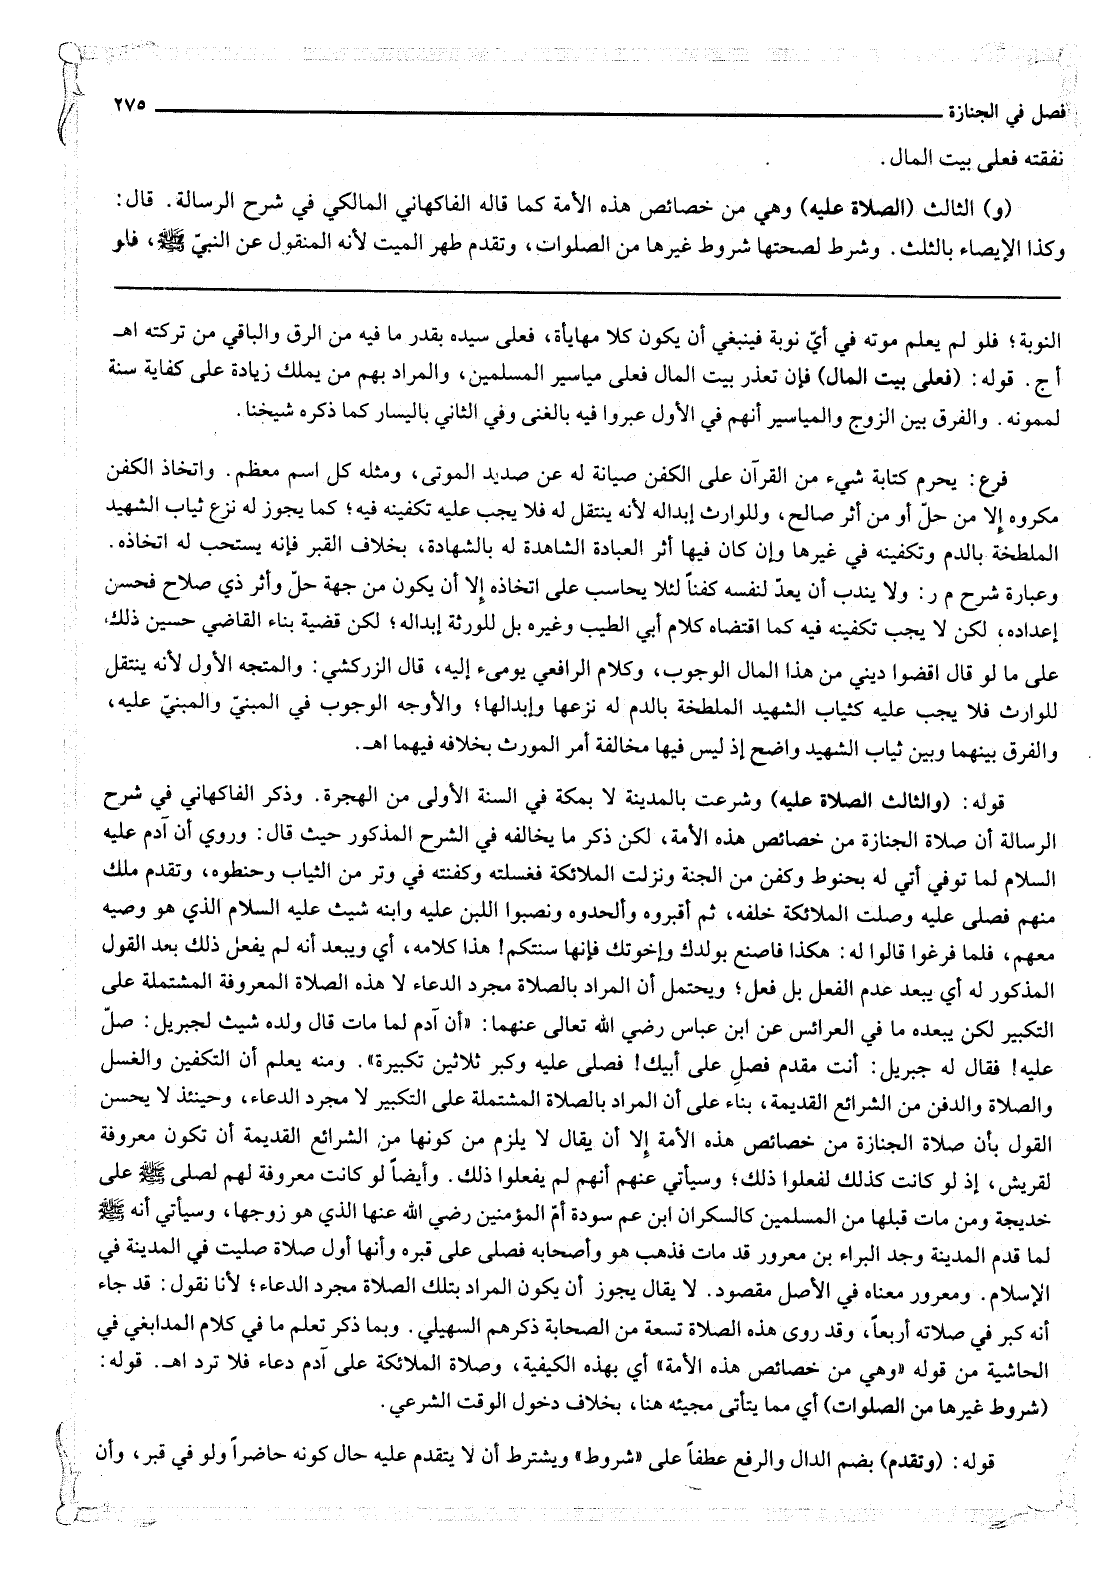 فصل في الجنازة ٢٧٥
نفقته فعلى بيت المال.
(و) الثالث (الصلاة عليه) وهي من خصائص هذه الأمة كما قاله الفاكهاني المالكي في شرح الرسالة. قال:
وكذا الإيصاء بالثلث. وشرط لصحتها شروط غيرها من الصلوات، وتقدم طهر الميت لأنه المنقول عن النبيّ ﷺ، فلو
النوبة؛ فلو لم يعلم موته في أيّ نوبة فينبغي أن يكون كلا مهايأة، فعلى سيده بقدر ما فيه من الرق والباقي من تركته اهـ
أ ج. قوله: (فعلى بيت المال) فإن تعذر بيت المال فعلى مياسير المسلمين، والمراد بهم من يملك زيادة على كفاية سنة
لممونه. والفرق بين الزوج والمياسير أنهم في الأول عبروا فيه بالغنى وفي الثاني باليسار كما ذكره شيخنا.
فرع: يحرم كتابة شيء من القرآن على الكفن صيانة له عن صديد الموتى، ومثله كل اسم معظم. واتخاذ الكفن
مكروه إلا من حلّ أو من أثر صالح، وللوارث إبداله لأنه ينتقل له فلا يجب عليه تكفينه فيه؛ كما يجوز له نزع ثياب الشهيد
الملطخة بالدم وتكفينه في غيرها وإن كان فيها أثر العبادة الشاهدة له بالشهادة، بخلاف القبر فإنه يستحب له اتخاذه.
وعبارة شرح م ر: ولا يندب أن يعدّ لنفسه كفناً لئلا يحاسب على اتخاذه إلا أن يكون من جهة حلّ وأثر ذي صلاح فحسن
إعداده، لكن لا يجب تكفينه فيه كما اقتضاه كلام أبي الطيب وغيره بل للورثة إبداله؛ لكن قضية بناء القاضي حسين ذلك،
على ما لو قال اقضوا ديني من هذا المال الوجوب، وكلام الرافعي يومىء إليه، قال الزركشي: والمتجه الأول لأنه ينتقل
للوارث فلا يجب عليه كثياب الشهيد الملطخة بالدم له نزعها وإبدالها؛ والأوجه الوجوب في المبنيّ والمبنيّ عليه،
والفرق بينهما وبين ثياب الشهيد واضح إذ ليس فيها مخالفة أمر المورث بخلافه فيهما اهـ.
قوله: (والثالث الصلاة عليه) وشرعت بالمدينة لا بمكة في السنة الأولى من الهجرة. وذكر الفاكهاني في شرح
الرسالة أن صلاة الجنازة من خصائص هذه الأمة، لكن ذكر ما يخالفه في الشرح المذكور حيث قال: وروي أن آدم عليه
السلام لما توفي أتي له بحنوط وكفن من الجنة ونزلت الملائكة فغسلته وكفنته في وتر من الثياب وحنطوه، وتقدم ملك
منهم فصلى عليه وصلت الملائكة خلفه، ثم أقبروه وألحدوه ونصبوا اللبن عليه وابنه شيث عليه السلام الذي هو وصيه
معهم، فلما فرغوا قالوا له: هكذا فاصنع بولدك وإخوتك فإنها سنتكم! هذا كلامه، أي ويبعد أنه لم يفعل ذلك بعد القول
المذكور له أي يبعد عدم الفعل بل فعل؛ ويحتمل أن المراد بالصلاة مجرد الدعاء لا هذه الصلاة المعروفة المشتملة على
التكبير لكن يبعده ما في العرائس عن ابن عباس رضي الله تعالى عنهما: «أن آدم لما مات قال ولده شيث لجبريل: صلّ
عليه! فقال له جبريل: أنت مقدم فصلِ على أبيك! فصلى عليه وكبر ثلاثين تكبيرة». ومنه يعلم أن التكفين والغسل
والصلاة والدفن من الشرائع القديمة، بناء على أن المراد بالصلاة المشتملة على التكبير لا مجرد الدعاء، وحينئذ لا يحسن
القول بأن صلاة الجنازة من خصائص هذه الأمة إلا أن يقال لا يلزم من كونها من الشرائع القديمة أن تكون معروفة
لقريش، إذ لو كانت كذلك لفعلوا ذلك؛ وسيأتي عنهم أنهم لم يفعلوا ذلك. وأيضاً لو كانت معروفة لهم لصلى ﷺ على
خديجة ومن مات قبلها من المسلمين كالسكران ابن عم سودة أمّ المؤمنين رضي الله عنها الذي هو زوجها، وسيأتي أنه ﷺ
لما قدم المدينة وجد البراء بن معرور قد مات فذهب هو وأصحابه فصلى على قبره وأنها أول صلاة صليت في المدينة في
الإسلام. ومعرور معناه في الأصل مقصود. لا يقال يجوز أن يكون المراد بتلك الصلاة مجرد الدعاء؛ لأنا نقول: قد جاء
أنه كبر في صلاته أربعاً، وقد روى هذه الصلاة تسعة من الصحابة ذكرهم السهيلي. وبما ذكر تعلم ما في كلام المدابغي في
الحاشية من قوله «وهي من خصائص هذه الأمة» أي بهذه الكيفية، وصلاة الملائكة على آدم دعاء فلا ترد اهـ. قوله:
(شروط غيرها من الصلوات) أي مما يتأتى مجيئه هنا، بخلاف دخول الوقت الشرعي.
قوله: (وتقدم) بضم الدال والرفع عطفاً على «شروط» ويشترط أن لا يتقدم عليه حال كونه حاضراً ولو في قبر، وأن